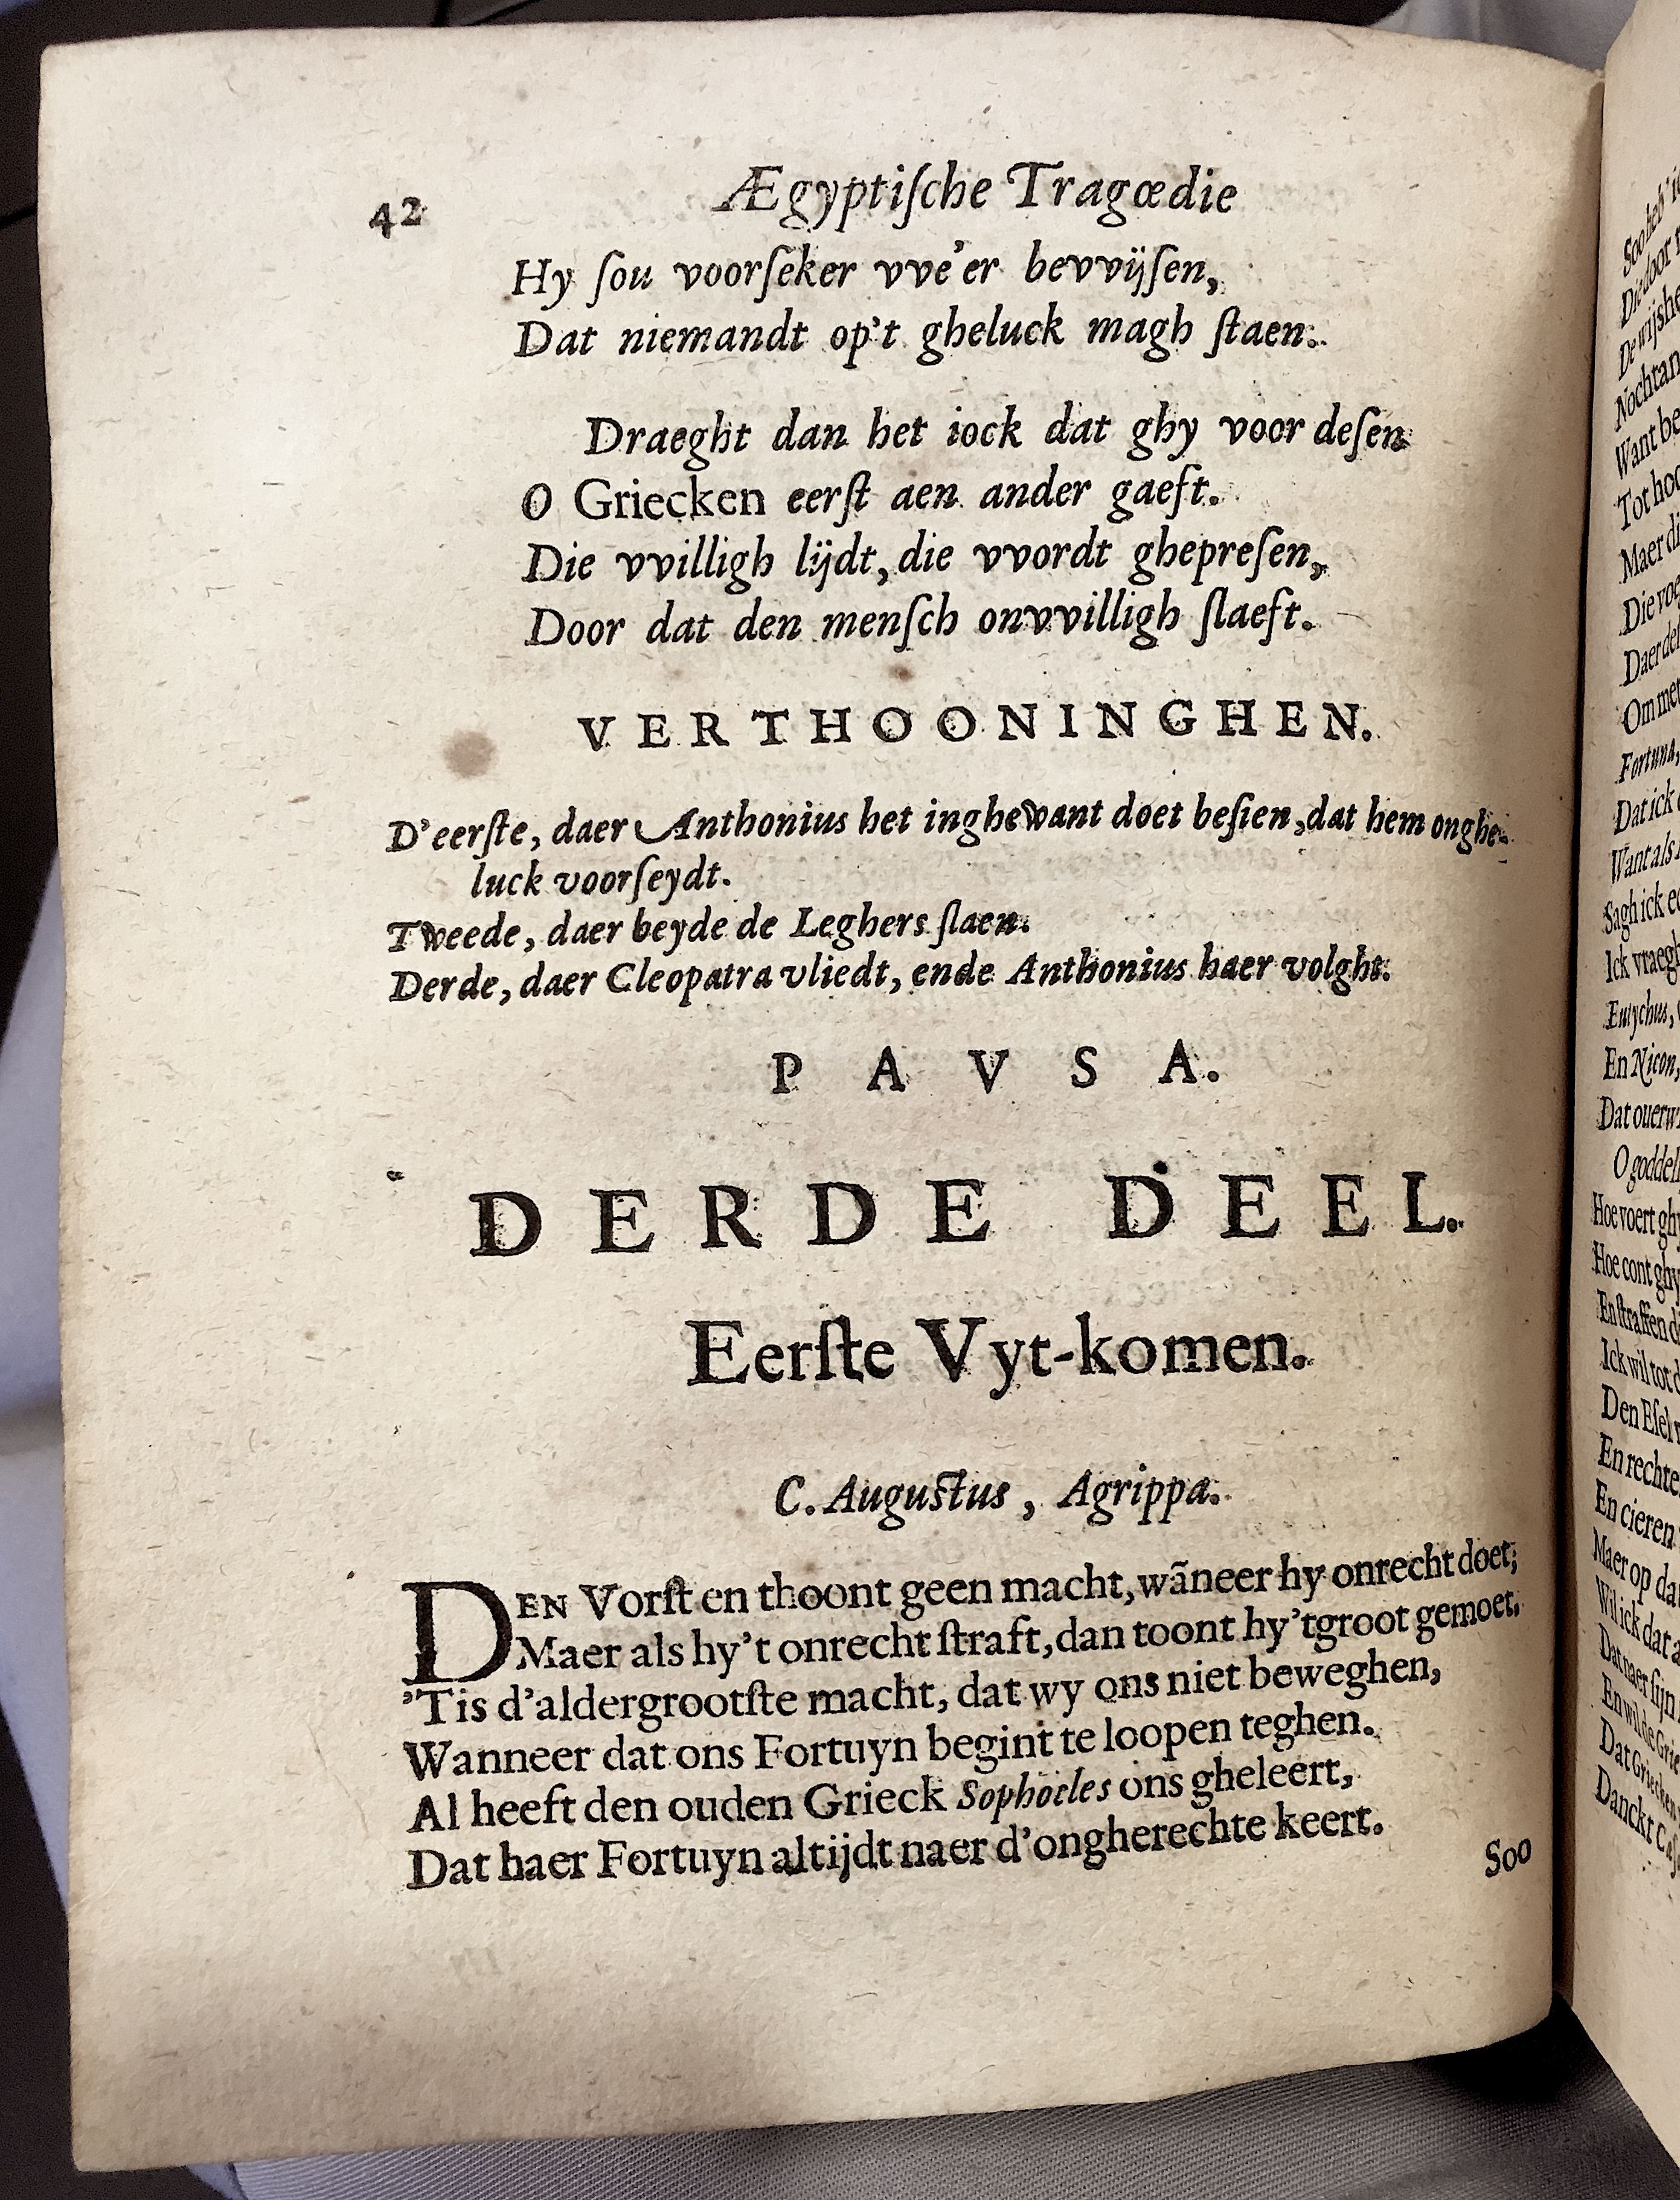 42 Ægyptiſche Tragœdie
Hy ſou voorſeker vve'er bevvijſen,
Dat niemandt op't gheluck magh ſtaen.
Draeght dan het iock dat ghy voor deſen
O Griecken eerſt aen ander gaeft.
Die vvilligh lijdt, die vvordt ghepreſen,
Door dat den menſch onvvilligh ſlaeft.
VERTHOONINGHEN.
D'eerſte, daer Anthonius het inghewant doet beſien, dat hem onghe-
luck voorſeydt.
Tweede, daer beyde de Leghers ſlaen.
Derde, daer Cleopatra vliedt, ende Anthonius haer volght.
PAVSA.
DERDE DEEL.
Eerſte Vyt-komen.
C. Auguſtus, Agrippa.
DEN Vorſt en thoont geen macht, wãneer hy onrecht doet;
Maer als hy't onrecht ſtraft, dan toont hy'tgroot gemoet.
'Tis d'aldergrootſte macht, dat wy ons niet beweghen,
Wanneer dat ons Fortuyn begint te loopen teghen.
Al heeft den ouden Grieck Sophocles ons gheleert,
Dat haer Fortuyn altijdt naer d'ongherechte keert.
Soo
Soo heb
Die door
De wijshe
Nochtan
Want be
Tot hoo
Maer di
Die voe
Daer del
Om mer
Fortuna,
Dat ick
Want als
Sagh ick ee
Ick vraegh
Eutychus,
En Nicon,
Dat ouerw
O goddel
Hoe voert ghy
Hoe cont ghy
En ſtraffen d
Ick wil tot d
Den Eſel
En rechte
En cieren
Maer op dat
Wil ick dat a
Dat naer ſijn
En wil de Grie
Dat Griecken
Danckt Cæ